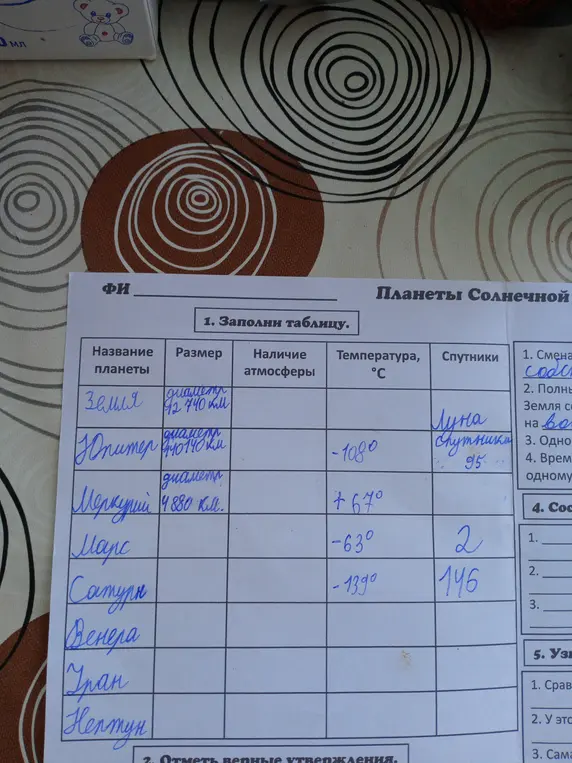 0 мл
ФИ
Планеты Солнечной
1. Заполни таблицу.
Название планеты Размер Наличие атмосферы Температура, °С Спутники
Земля диаметр 12 740 км Луна
Юпитер диаметр 140 км -108° спутники 95
Меркурий диаметр 4 880 км. +67°
Марс -63° 2
Сатурн -139° 146
Венера
Уран
Нептун
2. Отметь верные утверждения.
1. Смена
2. Полны
Земля со
на
3. Одно
4. Врем
одному
4. Сос
1.
2.
3.
5. Узн
1. Срав
2. У это
3. Сама